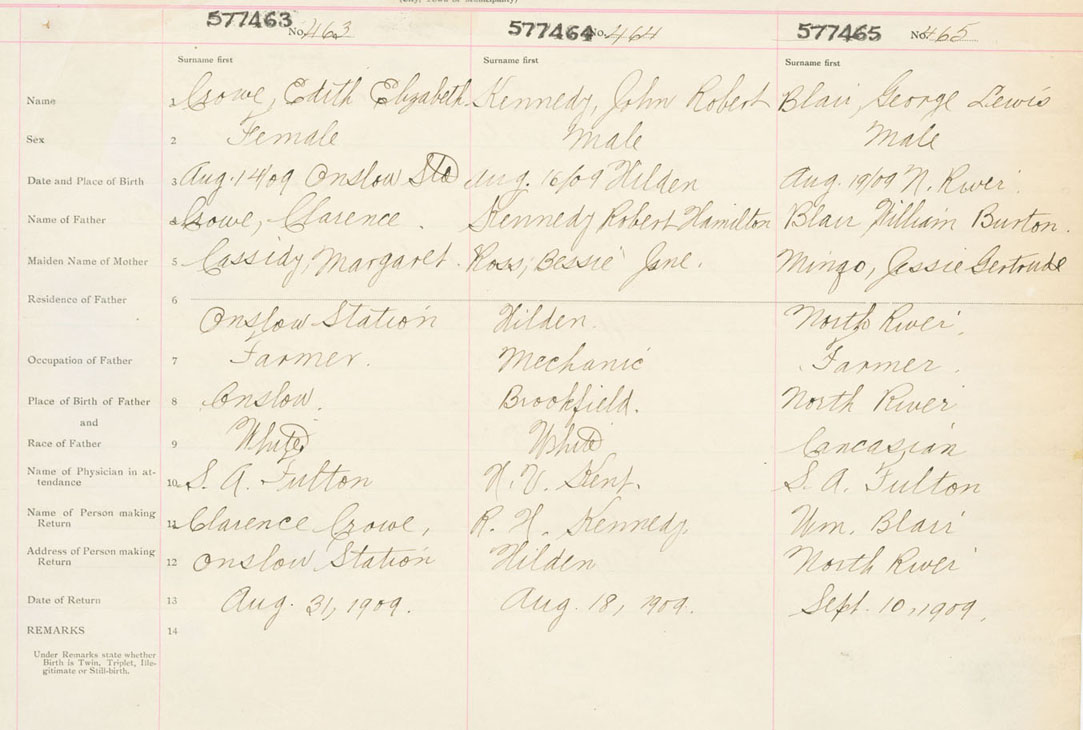 577463 No. 463 577464 No. 464 577465 No. 465
Surname first Surname first Surname first
Name 1 Crowe, Edith Elizabeth Kennedy, John Robert Blair, George Lewis
Sex 2 Female Male Male
Date and Place of Birth 3 Aug. 14/09 Onslow Sta Aug. 16/09 Hilden Aug. 19/09 N. River.
Name of Father 4 Crowe, Clarence. Kennedy Robert Hamilton Blair William Burton.
Maiden Name of Mother 5 Cassidy, Margaret. Ross, Bessie Jane. Mingo, Jessie Gertrude
Residence of Father 6
Onslow Station Hilden. North River.
Occupation of Father 7 Farmer. Mechanic Farmer.
Place of Birth of Father 8 Onslow. Brookfield. North River
and
Race of Father 9 White White Cancasian
Name of Physician in at-
tendance 10 S. A. Fulton H. V. Kent. S. A. Fulton
Name of Person making
Return 11 Clarence Crowe, R. H. Kennedy. Wm. Blair
Address of Person making
Return 12 Onslow Station Hilden North River
Date of Return 13 Aug. 31, 1909. Aug. 18, 1909. Sept. 10, 1909.
REMARKS 14
Under Remarks state whether
Birth is Twin, Triplet, Ille-
gitimate or Still-birth.